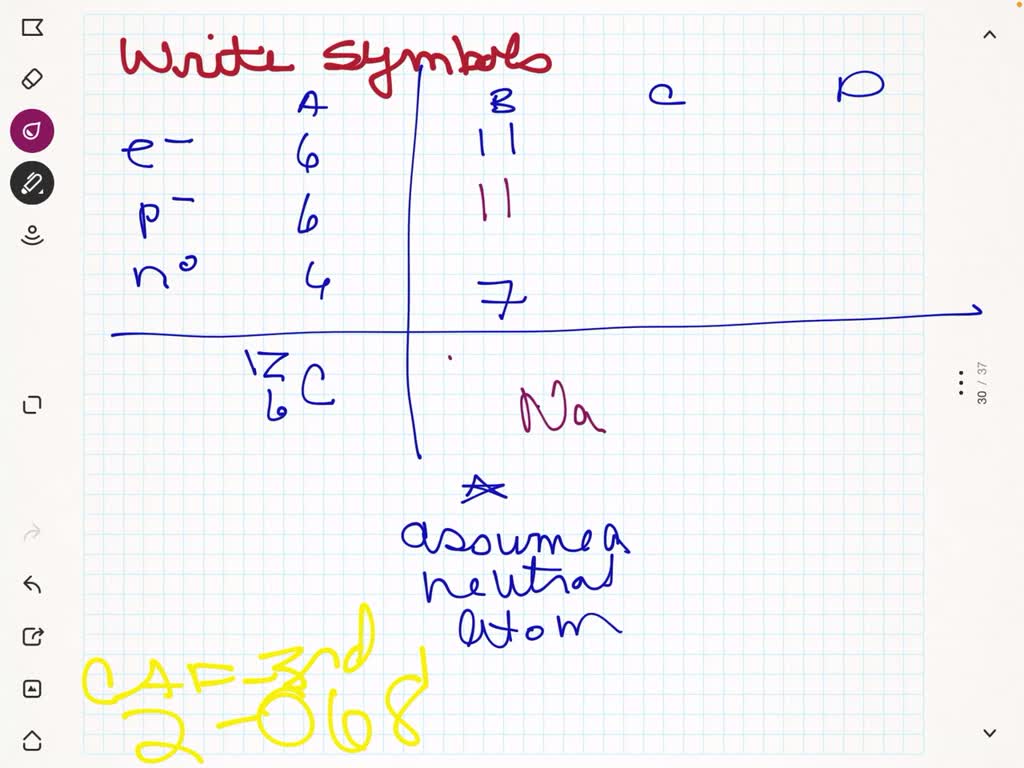 Write symbols
A B C D
e⁻ 6 11
p⁻ 6 11
n⁰ 4 7
¹²₆C Na
30 / 37
assume a
neutral
atom
CAF-3nd
2-068